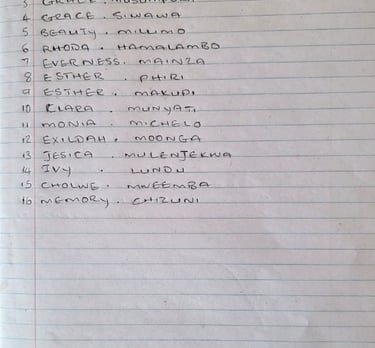 3 GRACE.
4 GRACE. SIWAWA
5 BEAUTY. MILIMO
6 RHODA. HAMALAMBO
7 EVERNESS. MAINZA
8 ESTHER. PHIRI
9 ESTHER. MAKUPI
10 CLARA. MUNYATI
11 MONIA. MICHELO
12 EXILDAH. MOONGA
13 JESICA. MULENJEKWA
14 IVY. LUNDU
15 CHOLWE. MWEEMBA
16 MEMORY. CHIZUNI